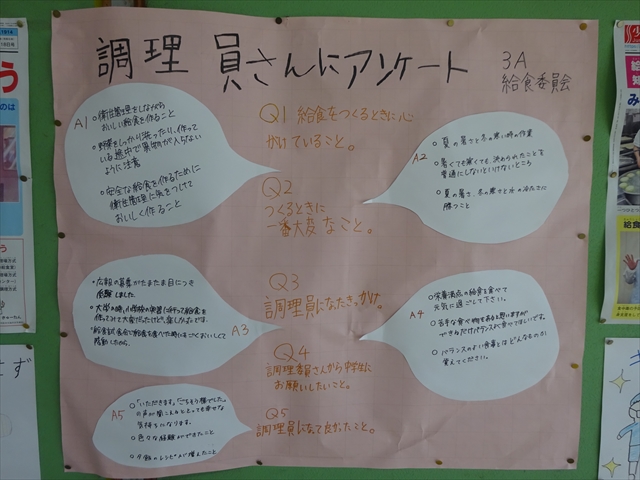 調理員さんにアンケート
3A
給食委員会
Q1 給食をつくるときに心
がけていること。
A1
○衛生管理をしながら
おいしい給食を作ること
○野菜をしっかり洗ったり、作って
いる途中で異物が入らない
ように注意
○安全な給食を作るために
衛生管理に気をつけて
おいしく作ること
Q2
つくるときに
一番大変なこと。
A2
○夏の暑さと冬の寒い時の作業
○暑くても寒くても、決められたことを
普通にしないといけないところ
○夏の暑さ、冬の寒さと水の冷たさに
勝つこと
Q3
調理員になったきっかけ。
A3
○広報の募集がたまたま目につき
応募しました。
Q4
調理委員さんから中学生に
お願いしたいこと。
A4
○栄養満点の給食を食べて
元気に過ごして下さい。
○苦手な食べ物もあると思いますが
できるだけバランスよく食べてほしいです。
○バランスのよい食事とはどんなものか
覚えてください。
Q5
調理員になって良かったこと。
A5
○「いただきます」「ごちそう様でした」
の声が聞こえるととっても幸せな
気持ちになります。
○色々な経験ができたこと
○夕飯のレシピが増えたこと